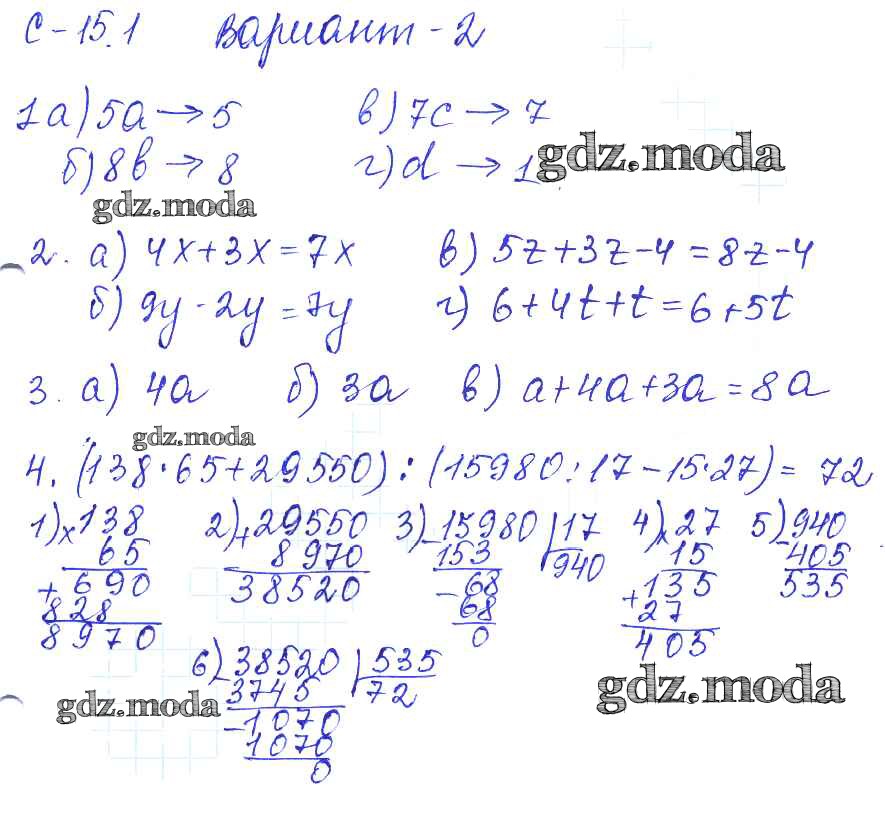 С-15.1 Вариант-2
1а) 5a → 5 в) 7c → 7
б) 8b → 8 г) d → 1
gdz.moda
gdz.moda
2. а) 4x+3x=7x в) 5z+3z-4=8z-4
б) 9y-2y=7y г) 6+4t+t=6+5t
3. а) 4a б) 3a в) a+4a+3a=8a
gdz.moda
4. (138·65+29550):(15980:17-15·27)=72
1) ×138 2) +29550 3) -15980 |17 4) ×27 5) -940
65 8970 153 940 15 405
+690 38520 -68 +135 535
828 68 27
8970 0 405
6) -38520 |535
3745 72
-1070
1070
0
gdz.moda
gdz.moda